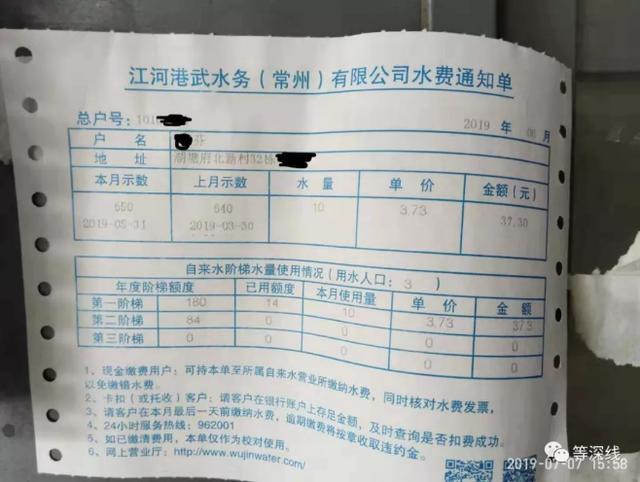 江河港武水务（常州）有限公司水费通知单
总户号：101
2019 年 06 月
户 名 芬
地 址 湖塘府北新村32栋
本月示数 上月示数 水 量 单 价 金额（元）
650 640 10 3.73 37.30
2019-05-31 2019-03-30
自来水阶梯水量使用情况（用水人口：3 ）
年度阶梯额度 已用额度 本月使用量 单 价 金 额
第一阶梯 180 14 10 3.73 37.3
第二阶梯 84 0 0 0
第三阶梯 0 0 0 0
1、现金缴费用户：可持本单至所属自来水营业所缴纳水费，同时核对水费发票，
以免缴错水费。
2、卡扣（或托收）客户：请客户在银行账户上存足金额，及时查询是否扣费成功。
3、请客户在本月最后一天前缴纳水费，逾期缴费将按章收取违约金。
4、24小时服务热线：962001
5、如已缴清费用，本单仅作为校对使用。
6、网上营业厅：http://www.wujinwater.com/
等深线
2019-07-07 15:58